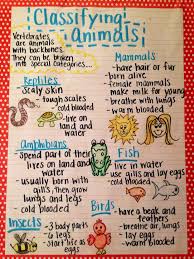 Classifying
Animals
Vertebrates
are animals
with backbones.
they can be broken
into special categories...
Reptiles
- scaly skin
- tough scales
- cold blooded
- live on
land and
water
Mammals
- have hair or fur
- born alive
- female mammals
make milk for young
- breathe with lungs
- warm blooded
Amphibians
- Spend part of their
lives on land and
water
- usually born with
gills, then
lives on land
- lay eggs
- cold blooded
Fish
- live in water
- use gills and lay eggs
- cold blooded
Birds
- have a beak and
feathers
- breathe air, lungs
- lay eggs
- warm blooded
Insects
- 3 body parts
- 6 legs
- start life as
eggs